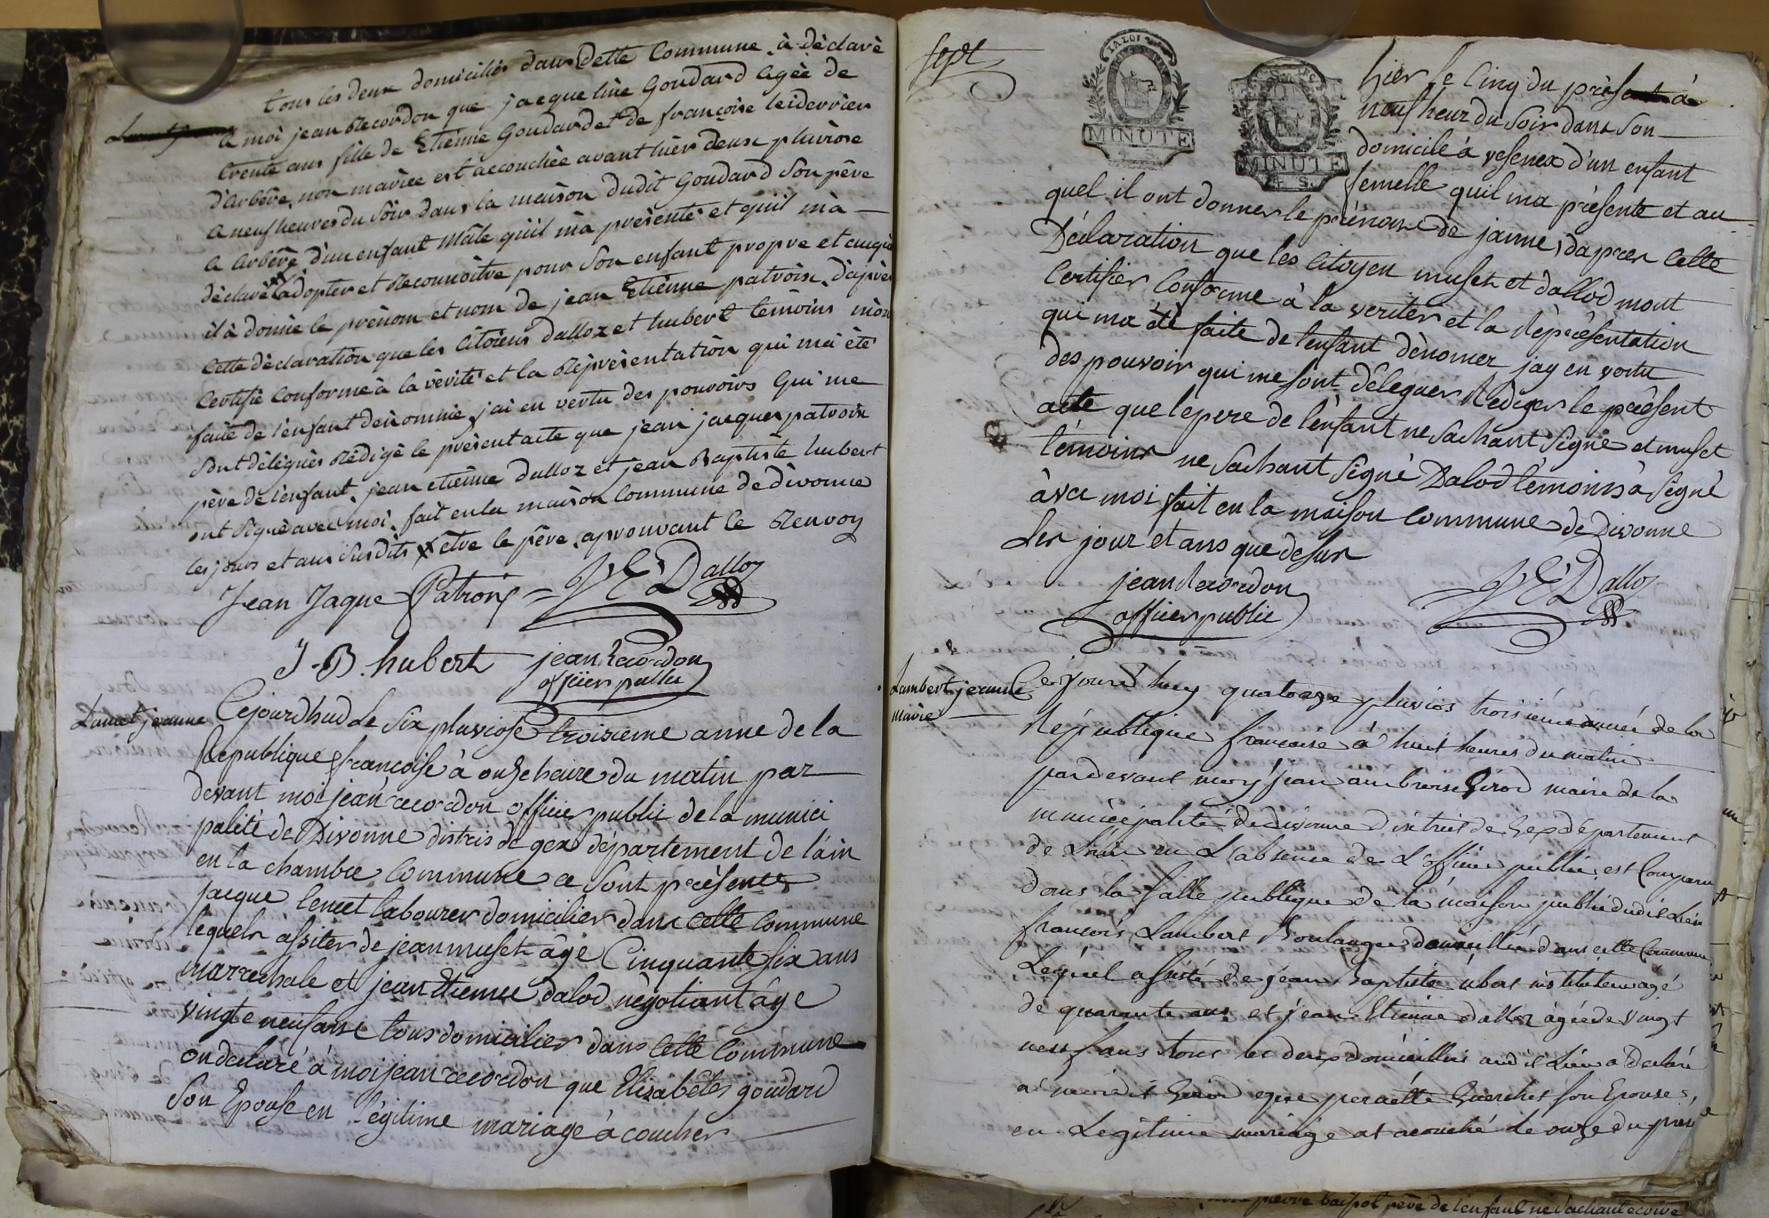 tous les deux domicilié dans Dette Commune à déclaré
à moi jean Recordon que jacqueline Goudard agée de
trente ans fille de Etienne Goudard et de françoise leiderrier
d'arbère, non mariée est accouchée avant hier deux pluviose
a neuf heures du Soir dans la maison dudit Goudard Son père
a arbère d'un enfant Mâle qu'il m'a présenté et qu'il m'a
déclaré adopter et Reconnoitre pour Son enfant propre et auquel
il à donné le prénom et nom de jean Etienne patroix. d'après
Cette déclaration que les Citoïens dalloz et hubert témoins m'ont
Certifié Conforme à la vérité et la Réprésentation qui m'a été
faite de l'enfant dénommé, j'ai en vertu des pouvoirs qui me
Sont délégués Rédigé le présent acte que jean jacques patroix
père de l'enfant, jean etienne dalloz et jean Baptiste hubert
ont Signé avec moi. fait en la maison Commune de divonne
les jours et an Susdits X être le père. aprouvant le Renvoy
Jean Jaque Patroix J. E. Dalloz
J. B. hubert jean Recordon
officier public
Lancet jeanne
Cejourdhud le Six pluviose troixieme anne de la
Republique francoise à onze heure du matin par
devant moi jean recordon officier public de la munici
palité de Divonne distris de gex département de l'ain
en la chambre Commune a Sont présentes
jacque lencet labourer domicilier dans cette Commune
lequels assiter de jean muset âgé Cinquante Six ans
marrechale et jean Etienne dalod négotiant âge
vingt e neuf ans tous domicilier dans Cette Commune
on declaré à moi jean recordon que Elizabétes goudard
Son Epouse en légitime mariage à coucher
Sept
LA LOI
MINUTE
MINUTE
hier le Cinq du présent à
neuf heur du Soir dans Son
domicile à vesenex d'un enfant
femelle qu'il ma présente et au
quel il ont donner le prénom de jaune, dapres cette
Déclaration que les Citoyen muset et dallod mont
Certifier Conforme à la veriter et la Répresentation
qui ma été faite de l'enfant dénomer jay en vertu
des pouvoir qui me sont déleguer Rediger le présent
acte que le pere de l'enfant ne Sachant Signé et muset
témoins ne Sâchant Signé Dalod témoins à Signé
àvec moi fait en la maison Commune de Divonne
Les jour et ans que desur
jean Recordon J. E. Dalloz
officier public
Lambert jeanne
Marie
Ce jourd'huy quatorze pluvios troisieme année de la
République française à huit heures du matin
pardevant moy Jean ambroise Girod maire de la
municipalité de divonne district de Gex département
de L'ain en L'absence de L'officier public, est Comparu
dans la Salle publique de la maison publi dudit Lieu
francois Lambert Boulanger domicillié dans cette Commune
Lequel assisté de jean Baptiste ubert instituteur agé
de quarante ans et jean Etienne dalloz âgé de vingt
neuf ans tous les deux domicilliés audit Lieu a declaré
en Legitime mariage at acouché le onze du présent
pierre père de l'enfant ne Sachant ecrire